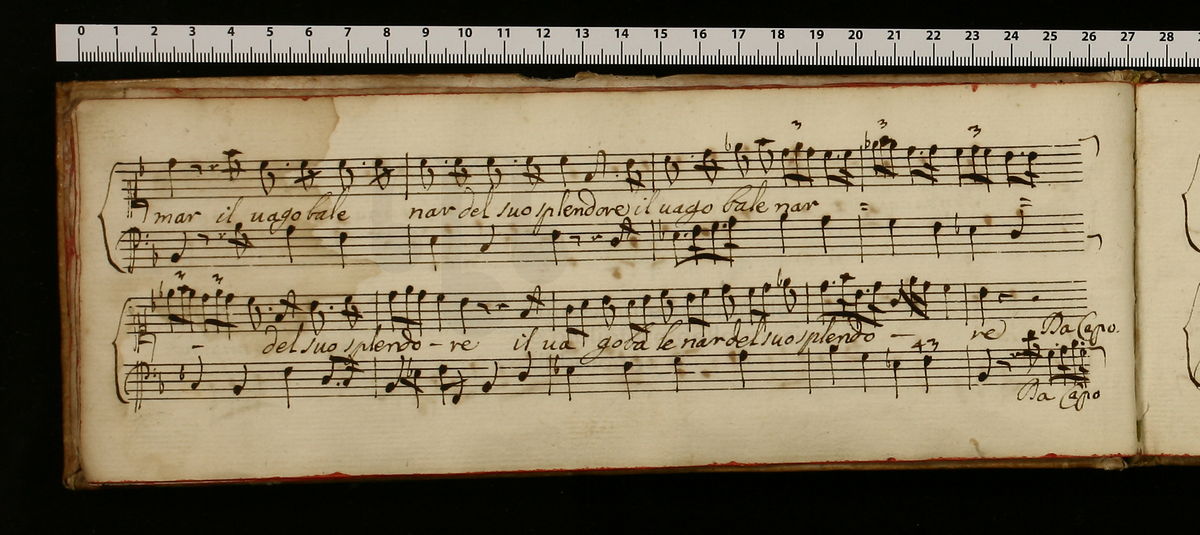 0 1 2 3 4 5 6 7 8 9 10 11 12 13 14 15 16 17 18 19 20 21 22 23 24 25 26 27 28
3 3 3
mar il uago bale nar del suo splendore il uago bale nar = =
3 3
- del suo splendo - re il ua go ba le nar del suo splendo - re Da Capo.
43
Da Capo